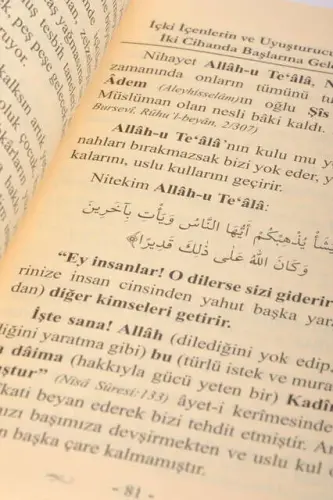 İçki İçenlerin ve Uyuşturucu
İki Cihanda Başlarına Gele
Nihayet Allâh-u Te‘âlâ, N
zamanında onların tümünü tu
Âdem (Aleyhisselâm)ın oğlu Şîs
Müslüman olan nesli bâki kaldı.
Bursevî, Rûhu'l-beyân, 2/307)
Allâh-u Te‘âlâ'nın kulu mu y
nahları bırakmazsak bizi yok eder, y
kalarını, uslu kullarını geçirir.
Nitekim Allâh-u Te‘âlâ:
يَشَأْ يُذْهِبْكُمْ أَيُّهَا النَّاسُ وَيَأْتِ بِآخَرِينَ
وَكَانَ اللّٰهُ عَلٰى ذٰلِكَ قَدِيرًا﴾
"Ey insanlar! O dilerse sizi giderir
rinize insan cinsinden yahut başka yar
dan) diğer kimseleri getirir.
İşte sana! Allâh (dilediğini yok edip,
diğini yaratma gibi) bu (türlü istek ve mura
dâima (hakkıyla gücü yeten bir) Kadî
ştur" (Nisâ Sûresi:133) âyet-i kerîmesinde
kati beyan ederek bizi tehdit etmiştir. Ar
ızı başımıza devşirmekten ve uslu kul
n başka çare kalmamıştır.
- 81 -